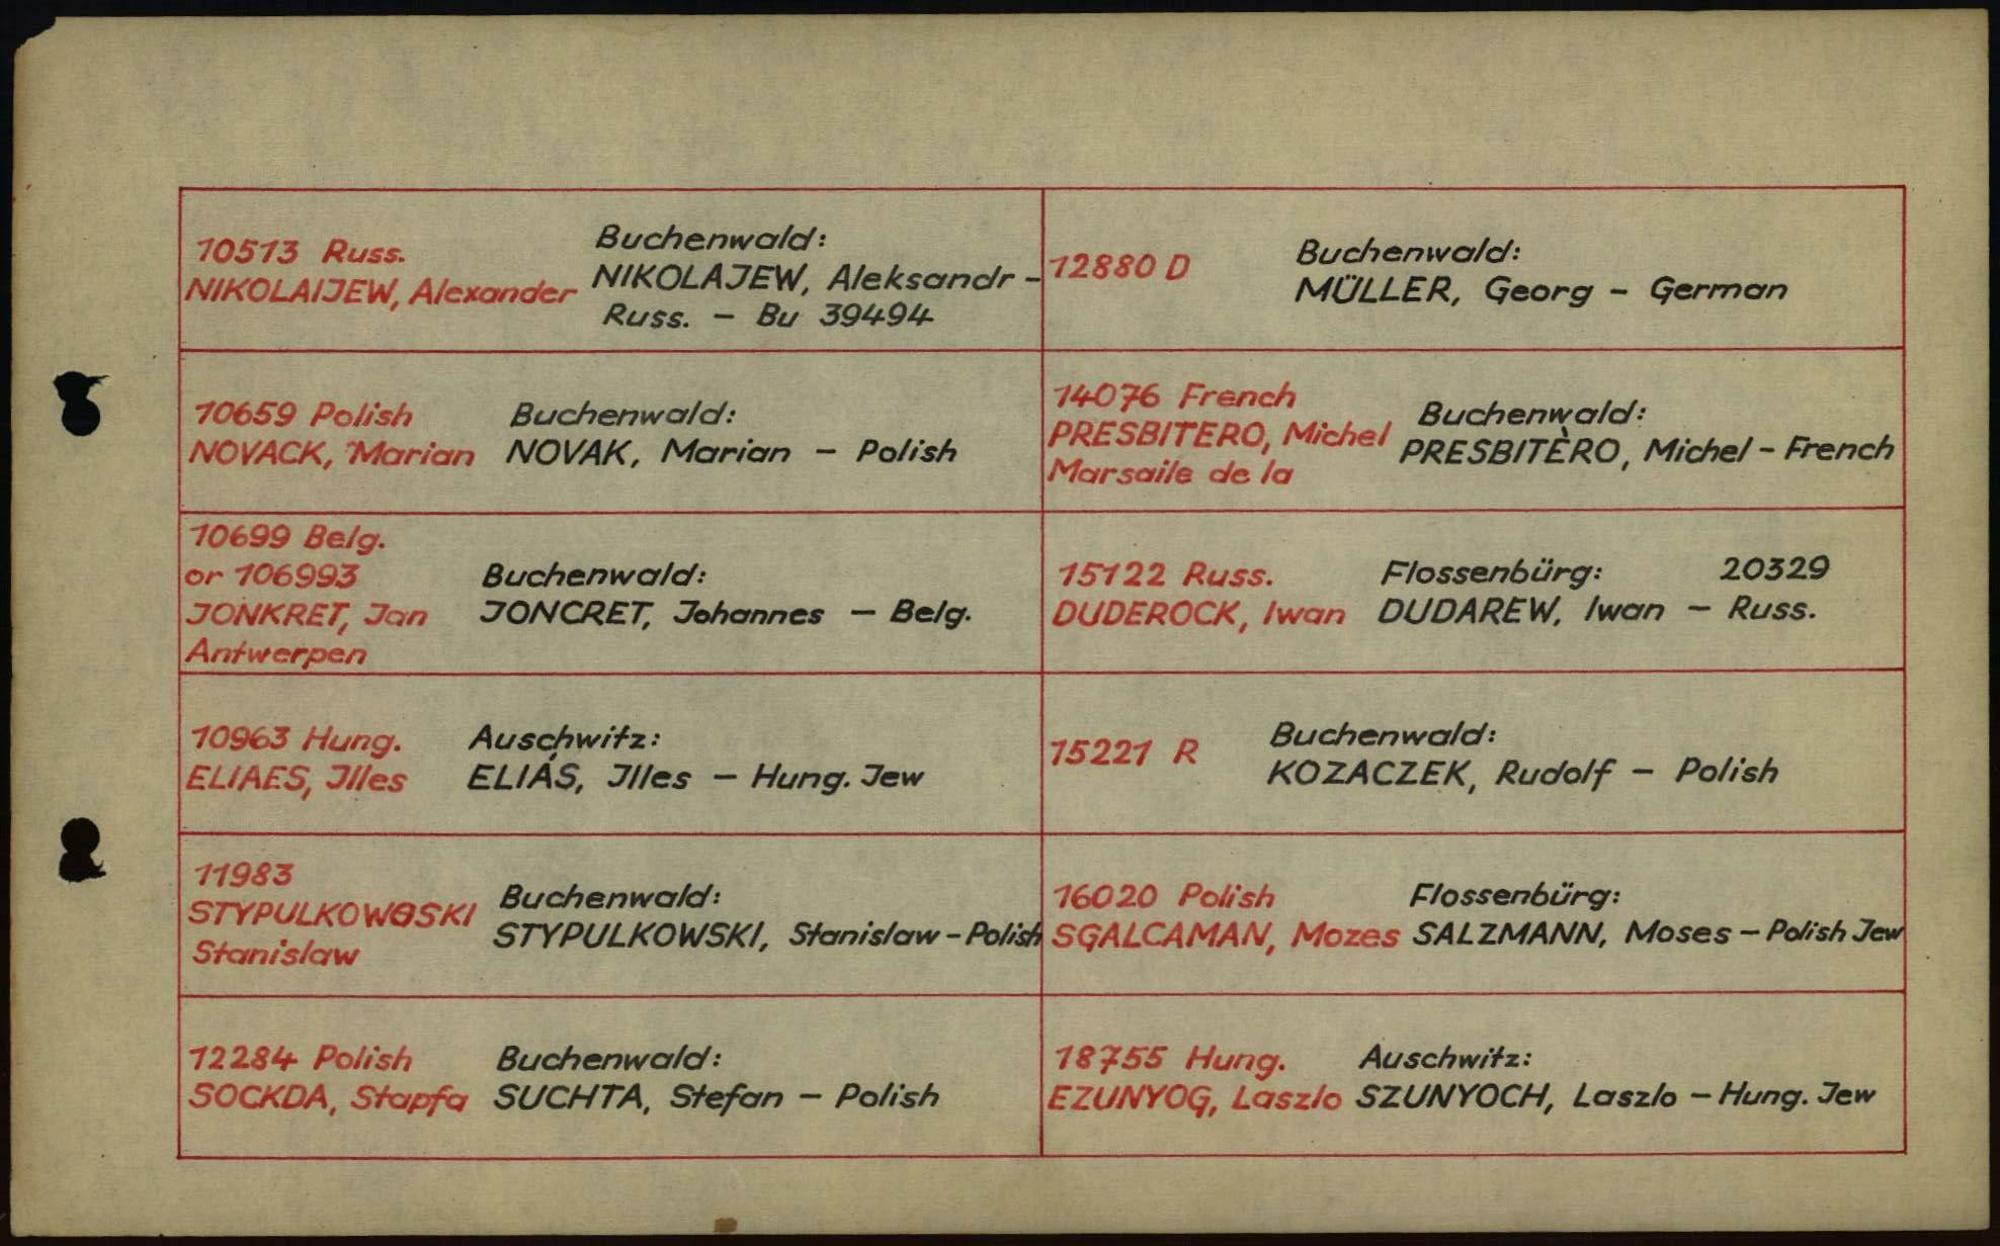 10513 Russ.
NIKOLAIJEW, Alexander
Buchenwald:
NIKOLAJEW, Aleksandr -
Russ. - Bu 39494
12880 D
Buchenwald:
MÜLLER, Georg - German
10659 Polish
NOVACK, Marian
Buchenwald:
NOVAK, Marian - Polish
14076 French
PRESBITERO, Michel
Marsaile de la
Buchenwald:
PRESBITÈRO, Michel - French
10699 Belg.
or 106993
JONKRET, Jan
Antwerpen
Buchenwald:
JONCRET, Johannes - Belg.
15122 Russ.
DUDEROCK, Iwan
Flossenbürg: 20329
DUDAREW, Iwan - Russ.
10963 Hung.
ELIAES, Illes
Auschwitz:
ELIÁS, Illes - Hung. Jew
15221 R
Buchenwald:
KOZACZEK, Rudolf - Polish
11983
STYPULKOWOSKI
Stanislaw
Buchenwald:
STYPULKOWSKI, Stanislaw - Polish
16020 Polish
SGALCAMAN, Mozes
Flossenbürg:
SALZMANN, Moses - Polish Jew
12284 Polish
SOCKDA, Stapfa
Buchenwald:
SUCHTA, Stefan - Polish
18755 Hung.
EZUNYOG, Laszlo
Auschwitz:
SZUNYOCH, Laszlo - Hung. Jew